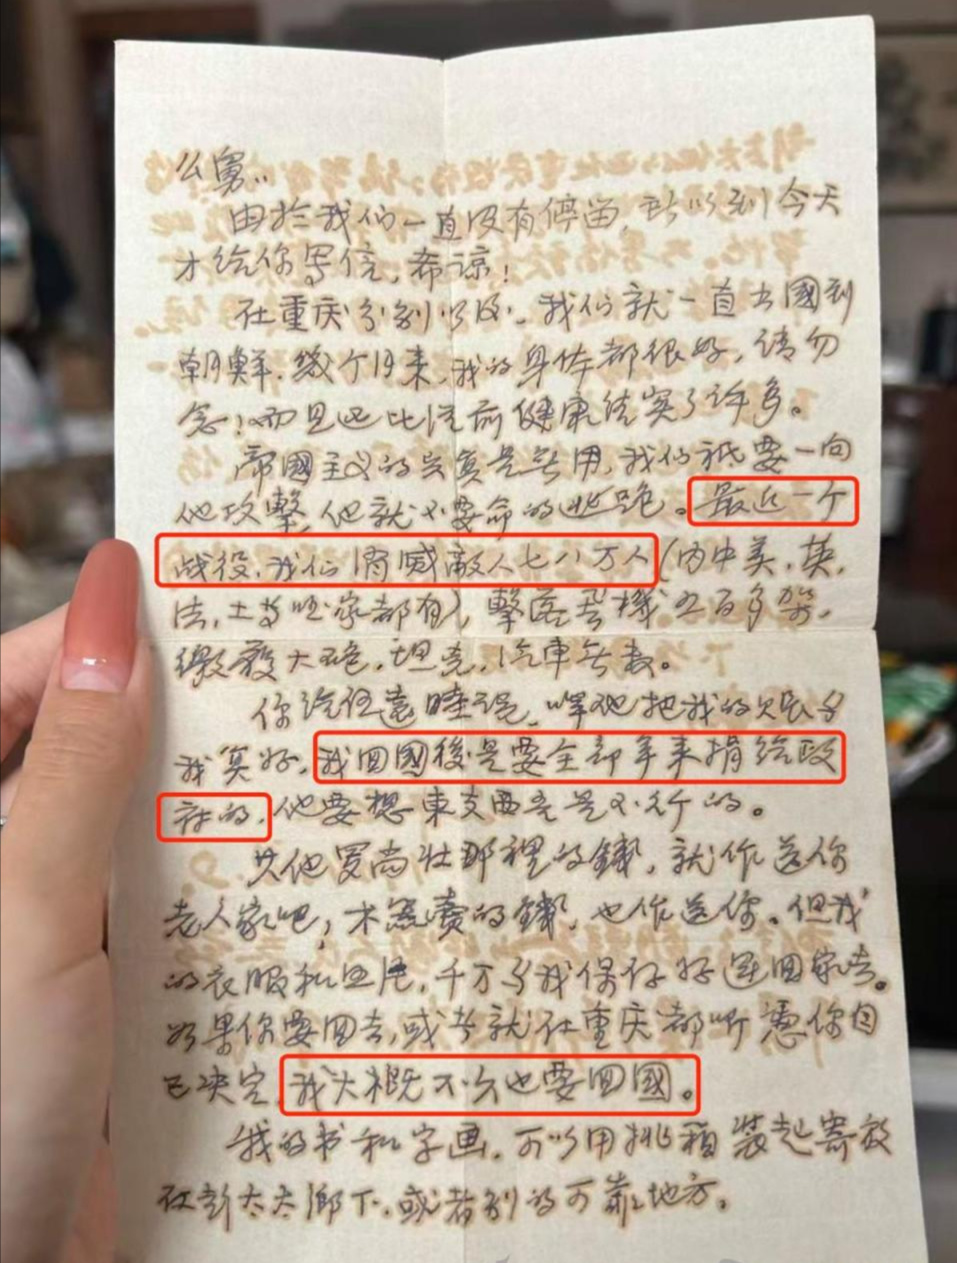 么舅：
由於我们一直没有停留，所以到今天
才给你写信，希谅！
在重庆分别以后，我们就一直出國到
朝鲜，幾个月来，我的身体都很好，请勿
念！而且还比从前健康结实了许多。
帝國主义的兵真是无用，我们祇要一向
他攻擊，他就不要命的逃跑。最近一个
战役，我们消滅敵人七八万人（内中美，英，
法，土等国家都有），擊落飛機五百多架，
缴获大砲，坦克，汽車无数。
你给任遠 说，叫他把我的 
我 好，我回國後是要全部拿来捐给政
府的，他要想東支西 是不行的。
其他罗尚壮那裡的錢，就作送你
老人家吧，木 賣的錢，也作送你。但我
的衣服和 ，千万与我保存好 回家去。
如果你要回去，或者就在重庆都听憑你自
己决定，我大概不久也要回國。
我的书和字画，可以用挑箱装起寄放
在彭太太鄉下，或者别的可靠地方。